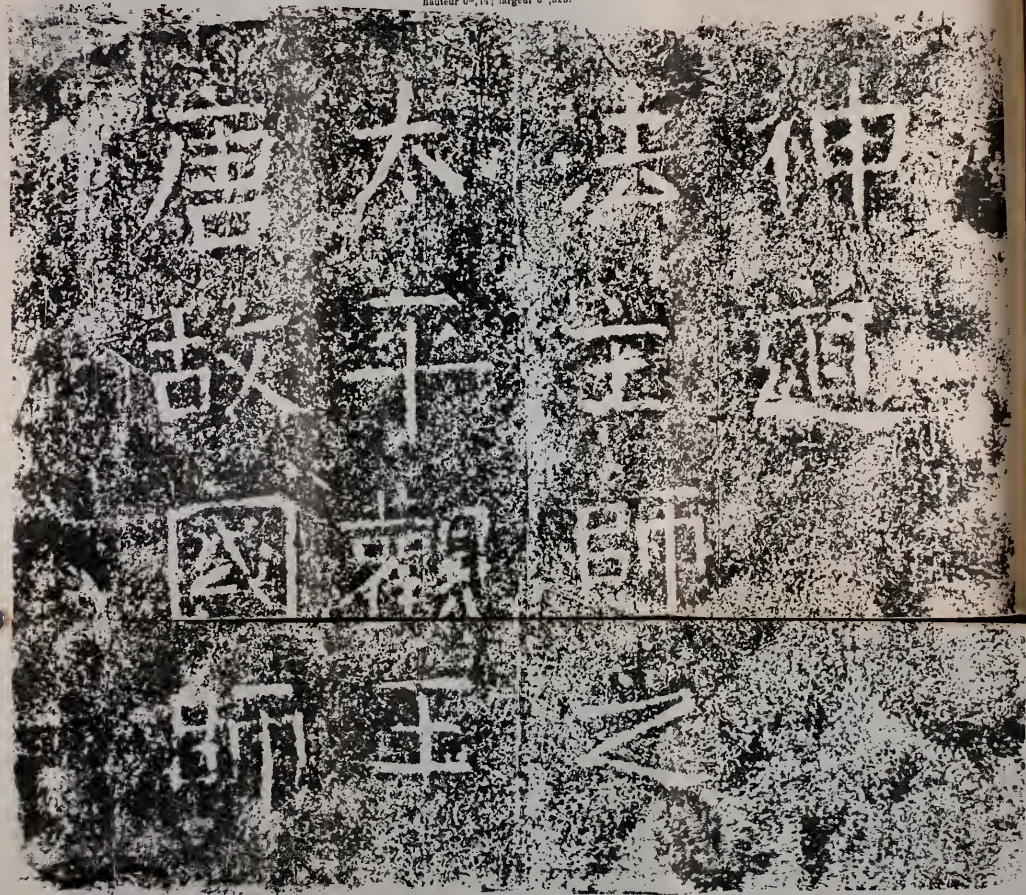 hauteur 0ᵐ,14; largeur 0ᵐ,328.
唐故國師
太平觀王
法主師之
神道